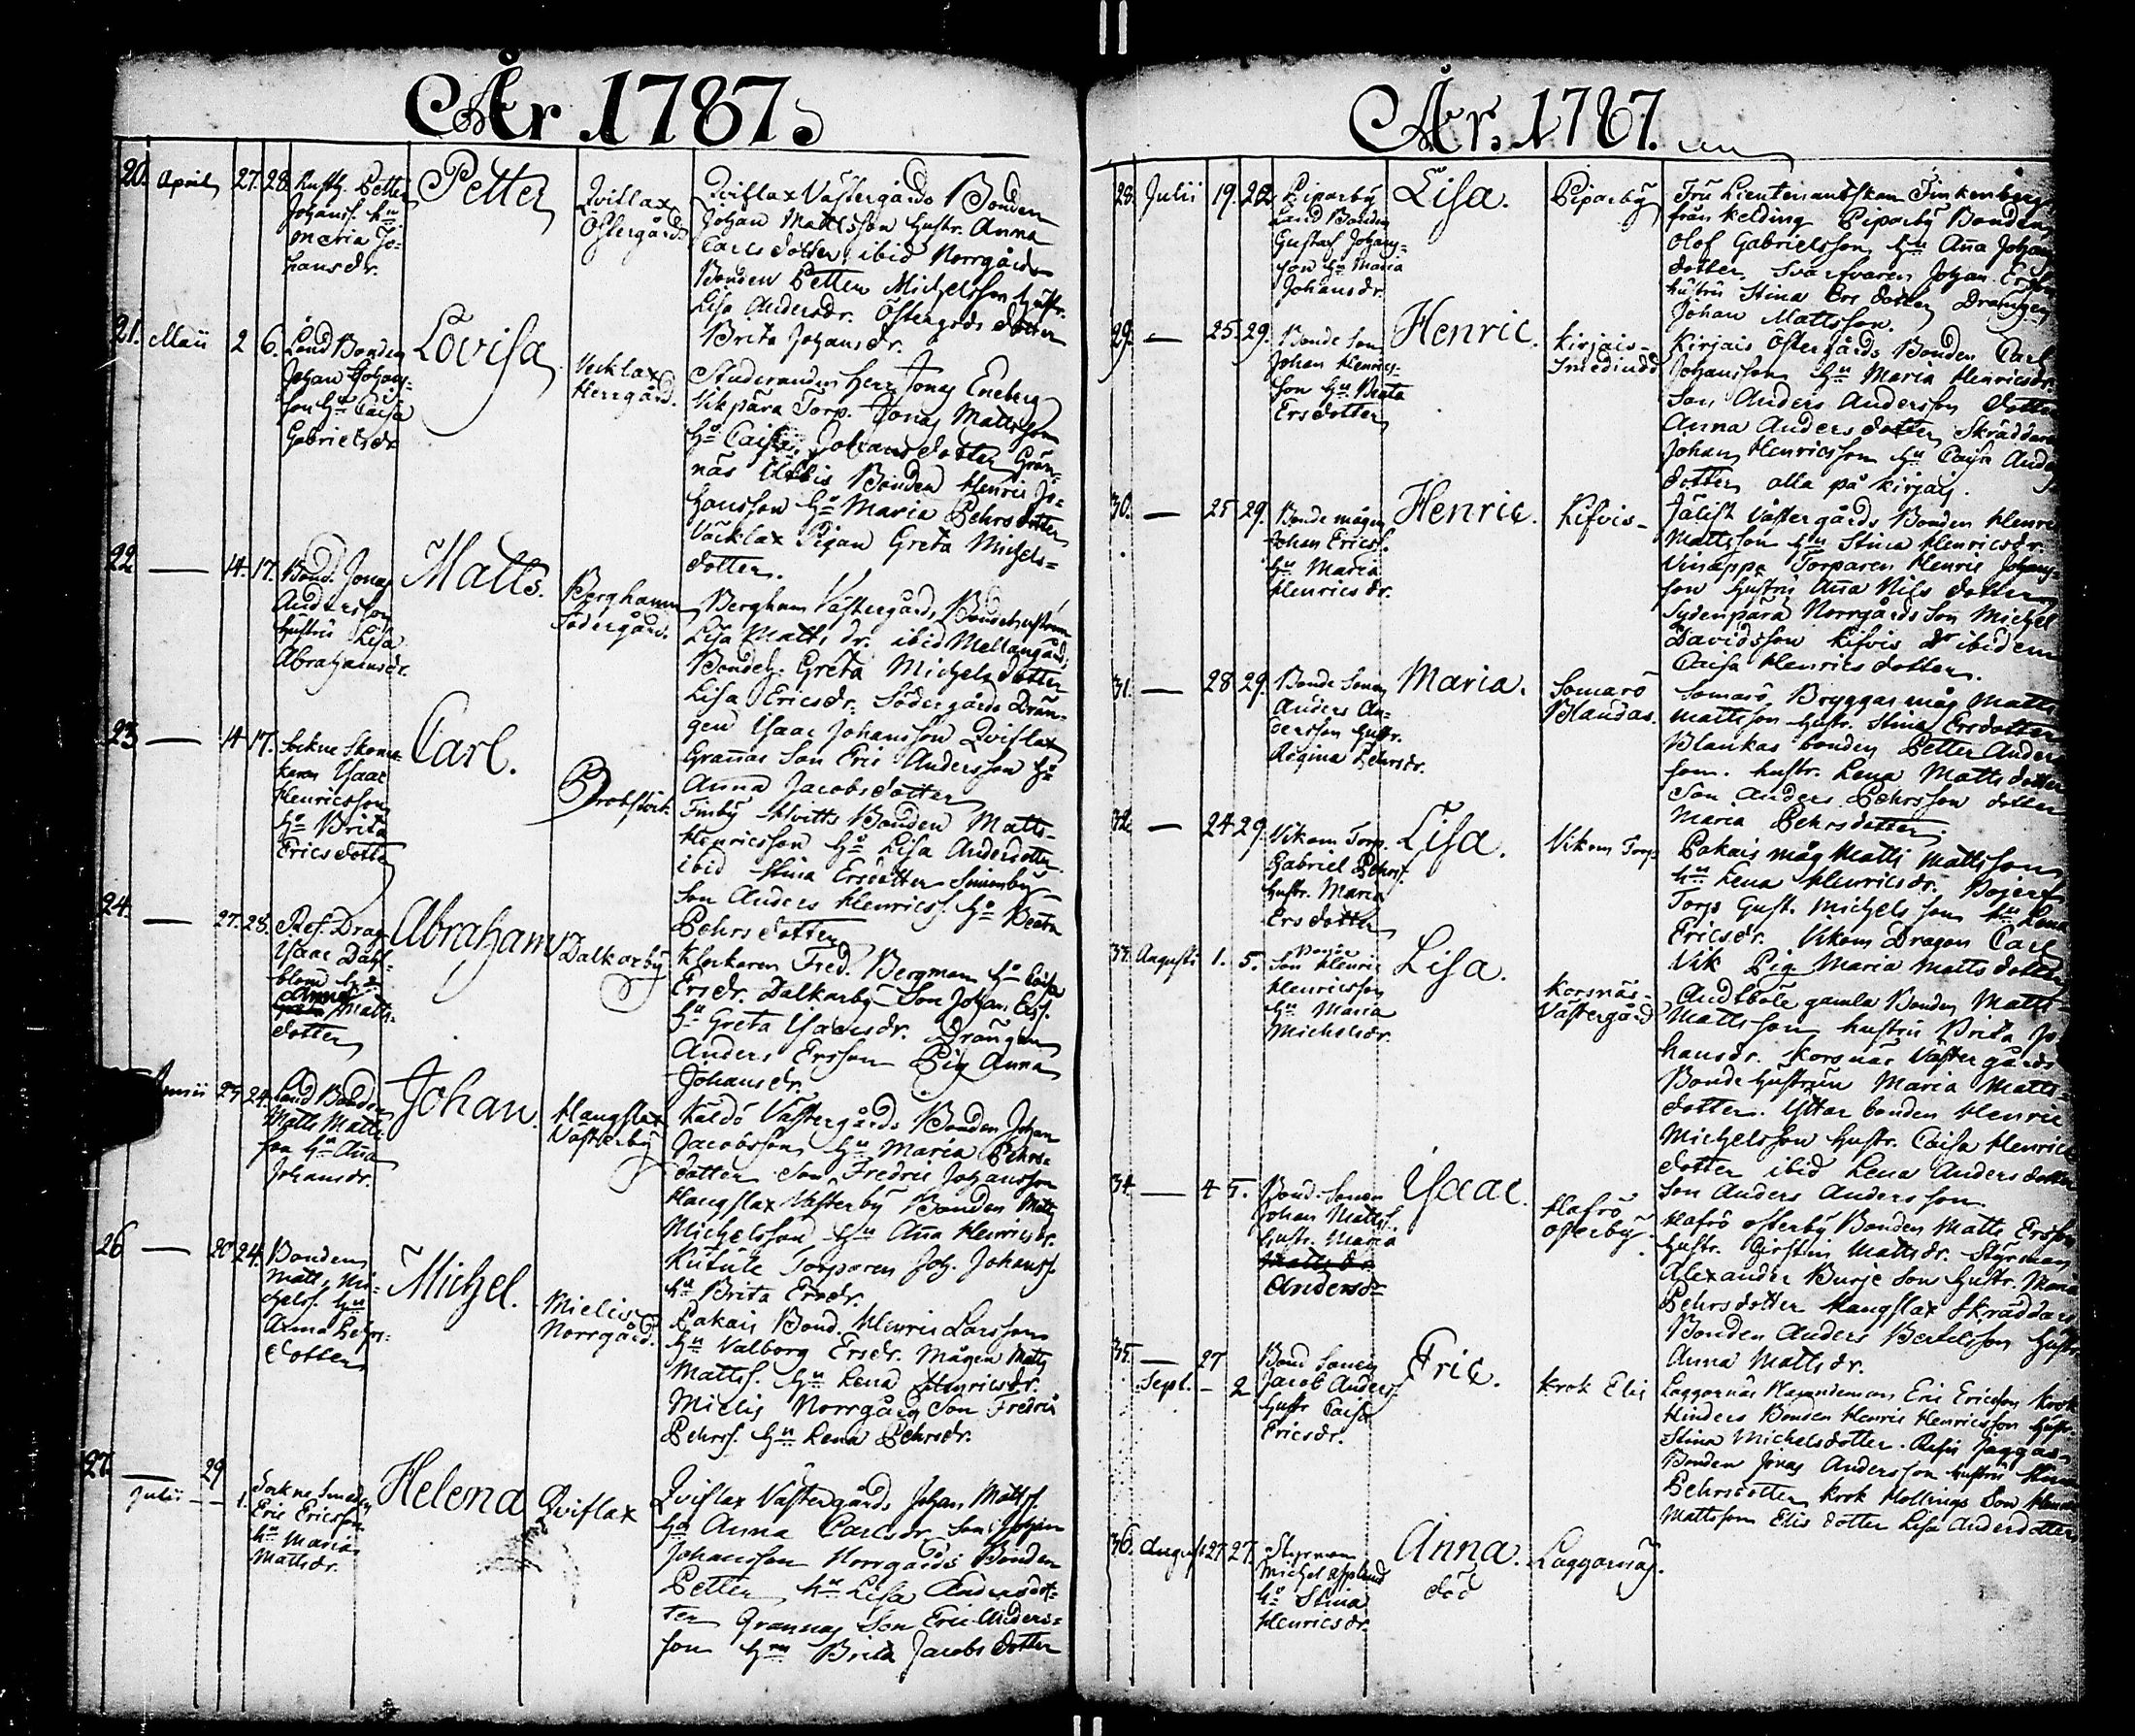 År 1787.
20. April 27. 28. Petter Johanss. hu Maria Johansdr.
Petter
Qviflax Östergård
Qviflax Västergårds Bonden
Johan Mattsson hustr. Anna
Carlsdotter, ibid Norrgårds
Bonden Petter Michelsson hustr.
Lisa Andersdr. Östergrds dotter
Brita Johansdr.
21. Maii 2 6. Land Bonden Johan Johansson hu Caisa Gabrielsdr
Lovisa
Vecklax Herrgård.
Studeranden Herr Jonas Eneberg
Vikpära Torp. Jonas Mattsson
hu Caisa Johansdotter Grännäs
Bonden Henric Johansson
hu Maria Pehrsdotter
Väcklax Pigan Greta Michelsdotter.
22 — 14. 17. Bond. Jonas Andersson hustru Lisa Abrahamsdr.
Matts.
Bergham Södergård.
Bergham Västergårds Bondehustrun
Lisa Matts dr. ibid Mellangårds
Bondeh. Greta Michelsdotter
Lisa Ericsdr. Södergårds Drängen
Isaac Johansson Qviflax
Grannas Son Eric Andersson hu
Anna Jacobsdotter
23 — 14 17. Sockne Skomakaren Isaac Henricsson hu Brita Ericsdotter
Carl.
Finby Hvitts Bonden Matts
Henricsson hu Lisa Andersdotter
ibid Stina Ersdotter Simonby
Son Anders Henricss. hu Beata
Pehrsdotter
24. — 27. 28. Drag. Isaac hu Anna Mattsdotter
Abraham
Dalkarby
Klockaren Fred. Bergman hu Caisa
Ersdr. Dalkarby Son Johan Erss.
hu Greta Isaacsdr. Drängen
Anders Ersson Pig Anna
Johansdr.
Junii 23 24. Land Bonden Matts Mattsson hu Aña Johansdr.
Johan.
Hangslax Västerby
Kaldö Västergårds Bonden Johan
Jacobsson hu Maria Pehrsdotter
Son Fredric Johansson
Hangslax Västerby Bonden Matts
Michelsson hu Aña Henricsdr.
Torparen Joh. Johanss.
hu Brita Ersdr.
26 — 20 24. Bonden Matts Michelss. hu Anna Pehrsdotter
Michel.
Mielis Norrgård.
Pakais Bond. Henric Larsson
hu Valborg Ersdr. Mågen Matts
Mattss. hu Lena Henricsdr.
Mielis Norrgård Son Fredric
Pehrss. hu Lena Pehrsdr.
27. — 29 Julii — 1. Sockne Smeden Eric Ericsson hu Maria Mattsdr.
Helena
Qviflax
Qviflax Västergårds Johan Mattss.
hu Anna Carlsdr. Son Johan
Johansson Norrgårds Bonden
Petter hu Lisa Andersdotter
Grannas Son Eric Andersson
hu Brita Jacobsdotter
År 1787.
28. Julii 19. 22. Piparby Land Bonden Gustaf Johansson hu Maria Johansdr.
Lisa.
Piparby
Fru Lieutenantskan
från Kelding Piparby Bonden
Olof Gabrielsson hu Aña Johansdotter
Svarfvaren Johan
hustru Stina Ersdotter Drängen
Johan Mattsson.
29. — 25. 29. Bonde Son Johan Henricsson hu Beata Ersdotter
Henric.
Kirjais
Kirjais Östergårds Bonden Carl
Johansson hu Maria Henricsdr.
Son Anders Andersson dotter
Anna Andersdotter Skräddaren
Johan Henricsson hu Caisa Anders
dotter alla på Kirjais.
30. — 25 29. Bonde mågen Johan Ericss. hu Maria Henricsdr.
Henric.
Kifvis
Jälist Västergårds Bonden Henric
Mattsson hu Stina Henricsdr.
Torparen Henric Johansson
hustru Aña Nilsdotter
Sydenpära Norrgårds Son Michel
Davidsson Kifvis dr ibidem
Caisa Henricsdotter.
31. — 28 29. Bonde Sonen Anders Andersson hustr. Regina Pehrsdr.
Maria.
Somarö Blankas.
Somarö Bryggas måg Matts
Mattsson hustr. Stina Ersdotter
Blankas bonden Petter Andersson.
hustr. Lena Mattsdotter
Son Anders Pehrsson dotter
Maria Pehrsdotter.
32. — 24 29. Vikom Torp. Gabriel Pehrss. hustr. Maria Ersdotter
Lisa.
Vikom Torp
Pakais måg Matts Mattsson
hu Lena Henricsdr.
Torp Gust. Michelsson hu Lena
Ericsdr. Vikom Dragon Carl
Vik Pig Maria Mattsdotter
33. Augusti 1. 5. Bonde Son Henric Henricsson hu Maria Michelsdr.
Lisa.
Korsnäs Västergård
Andtböle gamla Bonden Matts
Mattsson hustru Brita Johansdr.
Korsnäs Västergårds
Bonde hustrun Maria Mattsdotter.
Yttar bonden Henric
Michelsson hustr. Caisa Henricsdotter
ibid Lena Andersdotter
Son Anders Andersson
34. — 4 5. Bond Sonen Johan Mattss. hustr. Maria Andersdr
Isaac.
Hafrö Österby
Hafrö Österby Bonden Matts Ersson
hustr. Girstin Mattsdr. Styrman
Alexander hustr. Maria
Pehrsdotter Hangslax Skräddare
Bonden Anders Bertelsson hustr.
Anna Mattsdr.
35. — 27 Sept. — 2 Bond Sonen Jacob Anderss. hustr Caisa Ericsdr.
Eric.
Krok Elis
Laggarnäs Eric Ericsson Krok
Hinders Bonden Henric Henricsson hustr.
Stina Michelsdotter. Jaggas
Bonden Jonas Andersson hustru
Pehrsdotter Krok Hollings Son
Mattsson Elis dotter Lisa Andersdotter
36. August 27. 27. Styrman Michel hu Stina Henricsdr.
Anna.
död
Laggarnäs.